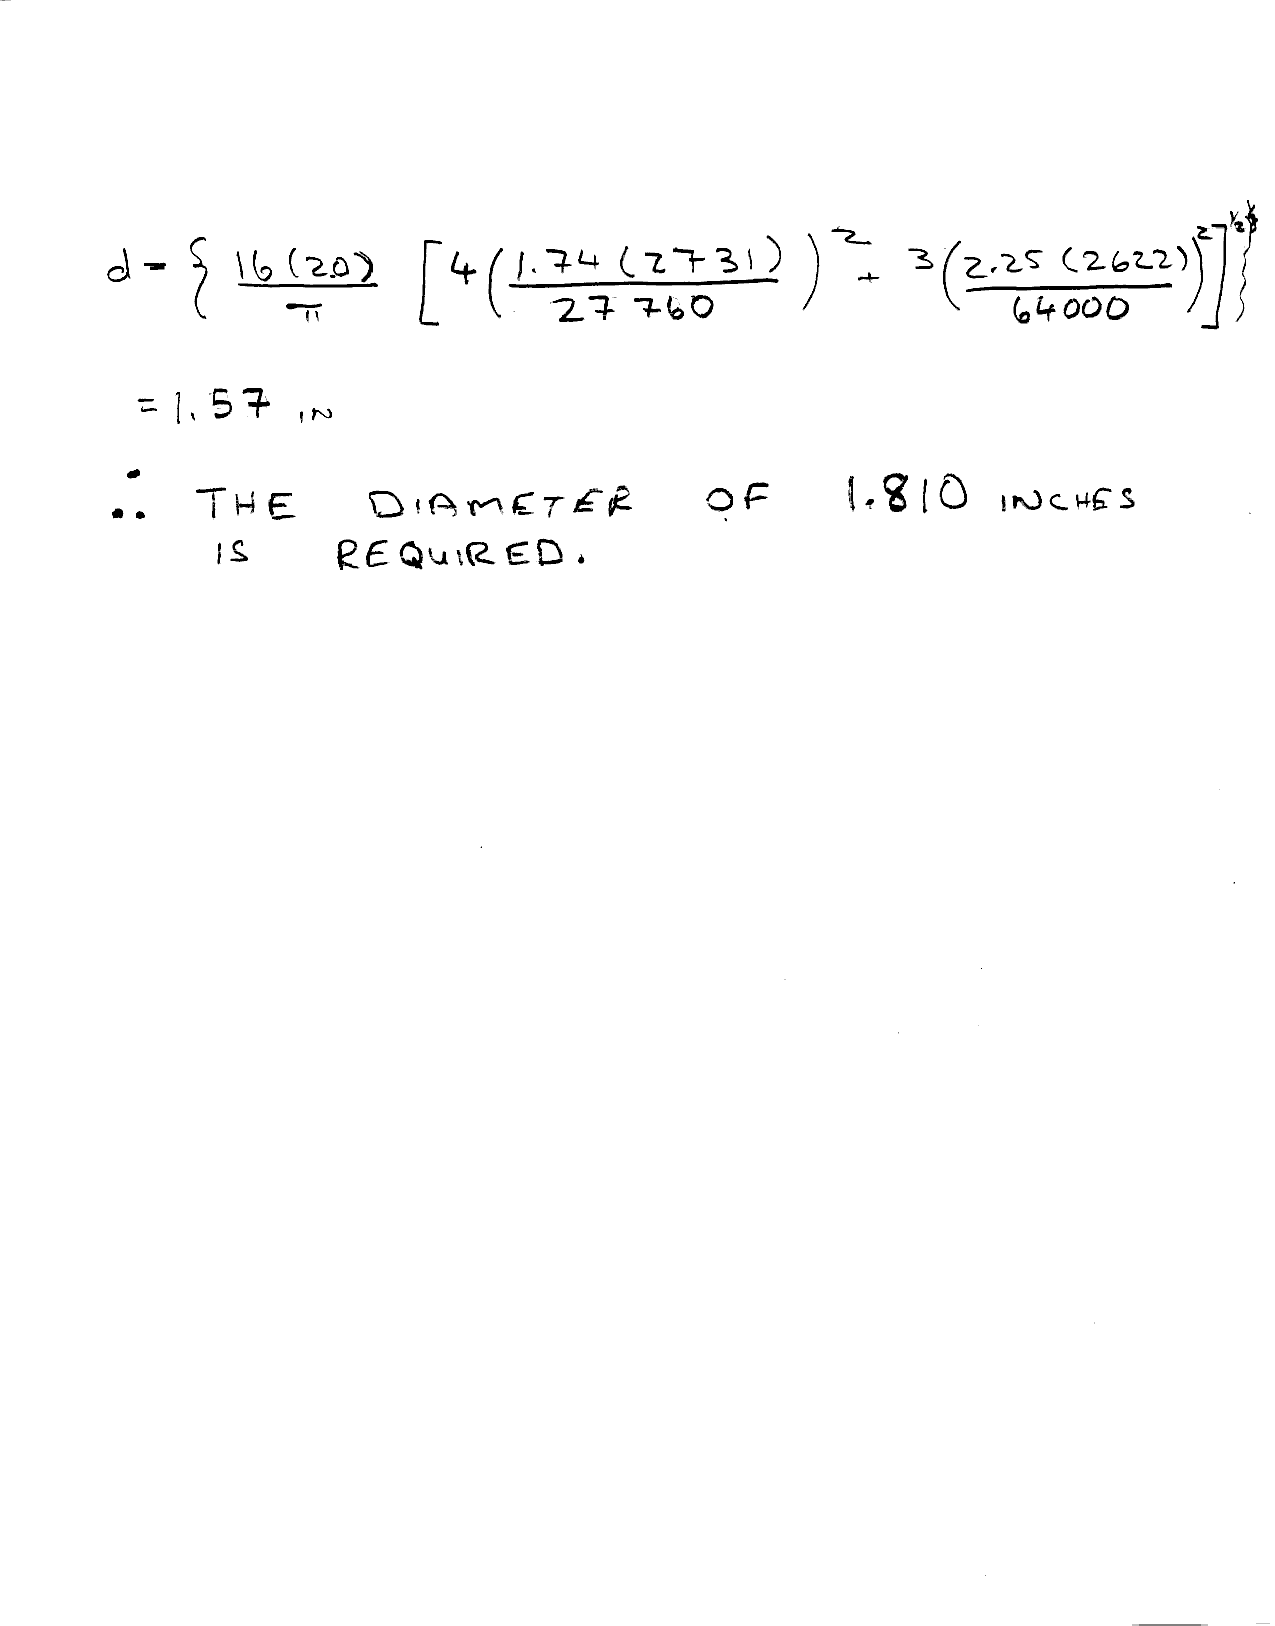 d = { 16(2.0) / π [ 4 ( 1.74 (2731) / 27760 )² + 3 ( 2.25 (2622) / 64000 )² ]^1/2 }^1/3
= 1.57 IN
∴ THE DIAMETER OF 1.810 INCHES
IS REQUIRED.